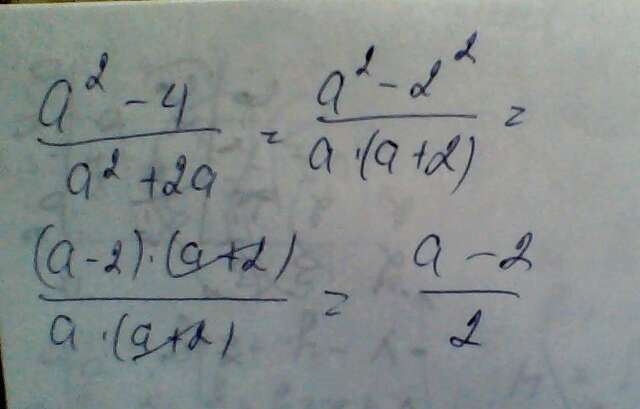 (a² - 4)/(a² + 2a) = (a² - 2²)/(a · (a + 2)) =
((a - 2) · (a + 2))/(a · (a + 2)) = (a - 2)/2